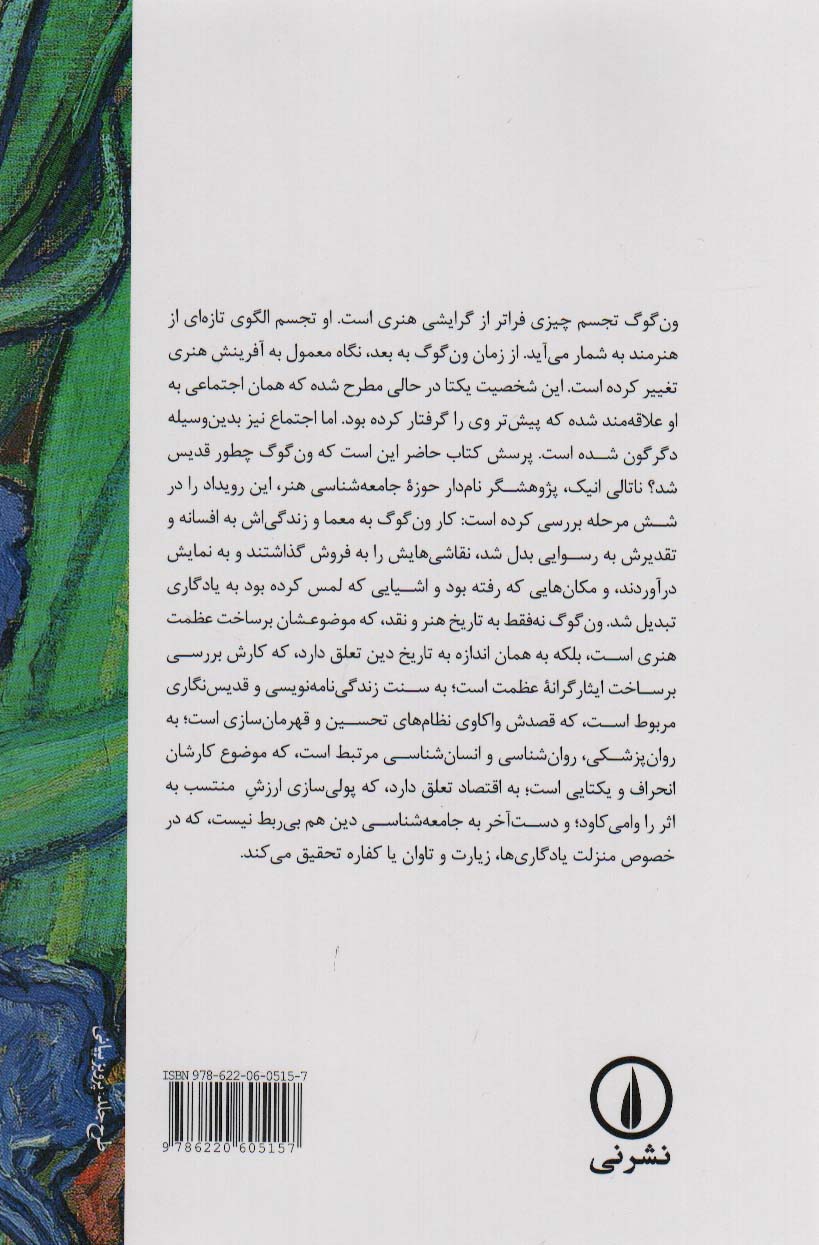 ون‌گوگ تجسم چیزی فراتر از گرایشی هنری است. او تجسم الگوی تازه‌ای از
هنرمند به شمار می‌آید. از زمان ون‌گوگ به بعد، نگاه معمول به آفرینش هنری
تغییر کرده است. این شخصیت یکتا در حالی مطرح شده که همان اجتماعی به
او علاقه‌مند شده که پیش‌تر وی را گرفتار کرده بود. اما اجتماع نیز بدین‌وسیله
دگرگون شده است. پرسش کتاب حاضر این است که ون‌گوگ چطور قدیس
شد؟ ناتالی انیک، پژوهشگر نام‌دار حوزهٔ جامعه‌شناسی هنر، این رویداد را در
شش مرحله بررسی کرده است: کار ون‌گوگ به معما و زندگی‌اش به افسانه و
تقدیرش به رسوایی بدل شد، نقاشی‌هایش را به فروش گذاشتند و به نمایش
درآوردند، و مکان‌هایی که رفته بود و اشیایی که لمس کرده بود به یادگاری
تبدیل شد. ون‌گوگ نه‌فقط به تاریخ هنر و نقد، که موضوعشان برساخت عظمت
هنری است، بلکه به همان اندازه به تاریخ دین تعلق دارد، که کارش بررسی
برساخت ایثارگرانهٔ عظمت است؛ به سنت زندگی‌نامه‌نویسی و قدیس‌نگاری
مربوط است، که قصدش واکاوی نظام‌های تحسین و قهرمان‌سازی است؛ به
روان‌پزشکی، روان‌شناسی و انسان‌شناسی مرتبط است، که موضوع کارشان
انحراف و یکتایی است؛ به اقتصاد تعلق دارد، که پولی‌سازی ارزشِ منتسب به
اثر را وامی‌کاود؛ و دست‌آخر به جامعه‌شناسی دین هم بی‌ربط نیست، که در
خصوص منزلت یادگاری‌ها، زیارت و تاوان یا کفاره تحقیق می‌کند.
طرح جلد: پرویز بیانی
ISBN 978-622-06-0515-7
9 786220 605157
نشرنی